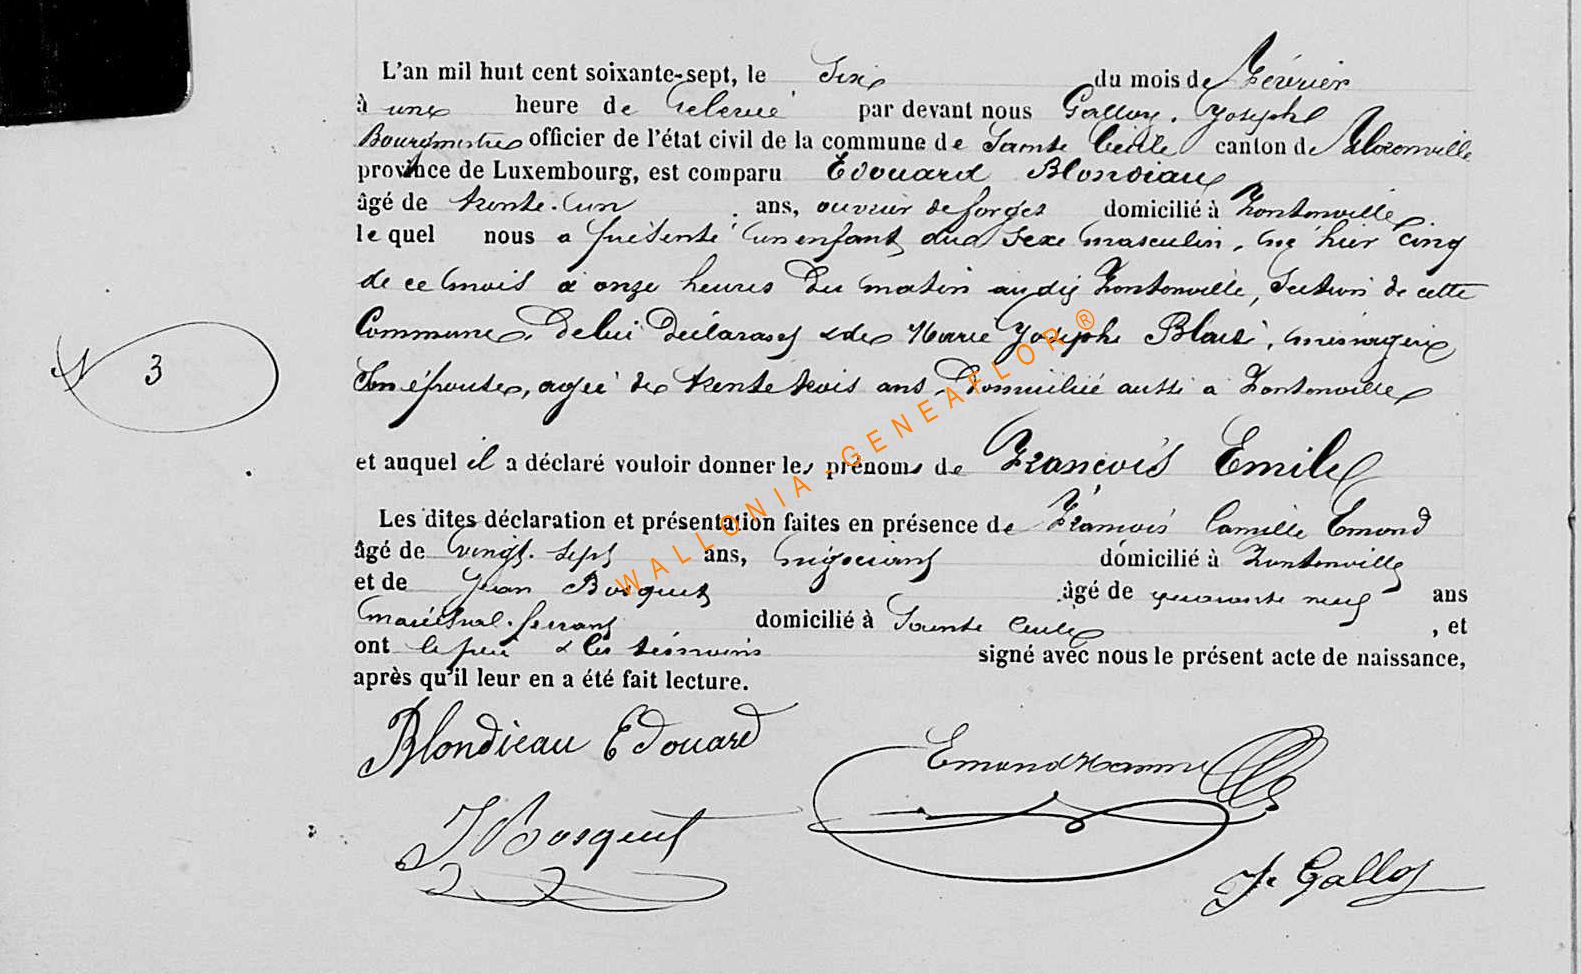 L'an mil huit cent soixante-sept, le Six du mois de Février
à une heure de relevée par devant nous Galloy, Joseph
Bourgmestre officier de l'état civil de la commune de Sainte Cécile canton de Florenville
province de Luxembourg, est comparu Edouard Blondiau
âgé de trente-un ans, ouvrier de forges domicilié à Fontenoille
le quel nous a présenté un enfant du sexe masculin, né hier cinq
de ce mois à onze heures du matin audit Fontenoille, Section de cette
Commune, de lui Déclarant & de Marie Josephe Blaise, ménagère
Son épouse, agée de trente trois ans, Domiciliée aussi à Fontenoille
N 3
et auquel il a déclaré vouloir donner les prénoms de François Emile
Les dites déclaration et présentation faites en présence de François Camille Emond
âgé de vingt-sept ans, négociant domicilié à Fontenoille
et de Jean Bosquet âgé de quarante neuf ans
maréchal-ferrant domicilié à Sainte Cécile, et
ont le père & les témoins signé avec nous le présent acte de naissance,
après qu'il leur en a été fait lecture.
Blondieau Edouard
J Bosquet
J. Galloy
WALLONIA-GENEAFLOR®